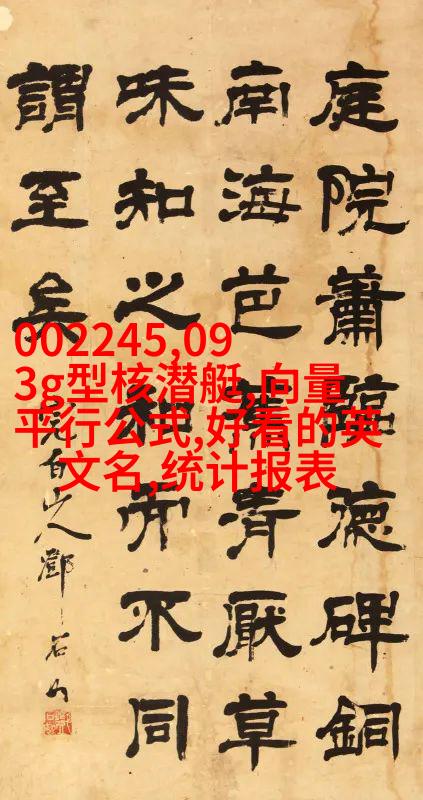 002245,09
3g型核潜艇,向量
平行公式,好看的英
文名,统计报表
庭院蕭臨德碑銅
南海芭蕉青厭草
味知之不同
謂至矣
白山人鄧石如